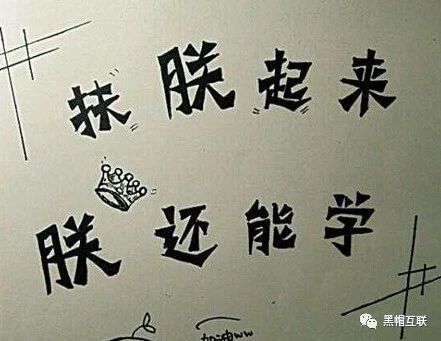 扶朕起来
朕还能学
加油ww
黑帽互联